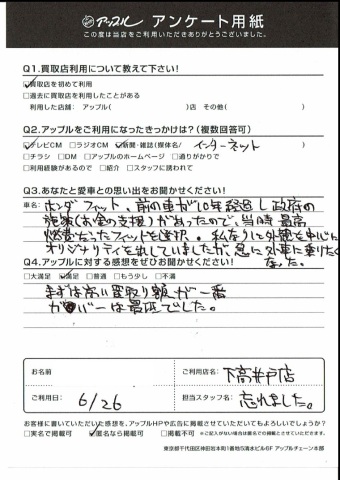 アップル アンケート用紙
この度は当店をご利用いただきありがとうございました。
Q1.買取店利用について教えて下さい!
☑買取店を初めて利用
□過去に買取店を利用したことがある
利用した店舗: アップル( )店 その他( )
Q2.アップルをご利用になったきっかけは?(複数回答可)
☑テレビCM □ラジオCM ☑新聞・雑誌(媒体名/ インターネット )
□チラシ □DM □アップルのホームページ □通りがかりで
□利用経験があるので □紹介 □スタッフに誘われて
Q3.あなたと愛車との思い出をお聞かせください!
車名: ホンダフィット。前の車が10年経過し政府の
施策(お金の支援)があったので、当時最高
燃費だったフィットを選択。私なりに外観を中心に
オリジナリティを出していましたが、急に外車に乗りたく
なった。
Q4.アップルに対する感想をぜひお聞かせください!
□大満足 ☑満足 □普通 □もう少し □不満
まずは高い買取り額が一番
ガリバーは最低でした。
お名前
ご利用店名: 下高井戸店
ご利用日: 6/26
担当スタッフ名: 忘れました。
お客様に書いていただいた感想を、アップルHPや広告に掲載させていただいてもよろしいでしょうか?
□実名で掲載可 ☑匿名なら掲載可 □掲載不可 ※ご記入がない場合は匿名での掲載とさせていただきます。
東京都千代田区神田岩本町1番地5清水ビル6F アップルチェーン本部